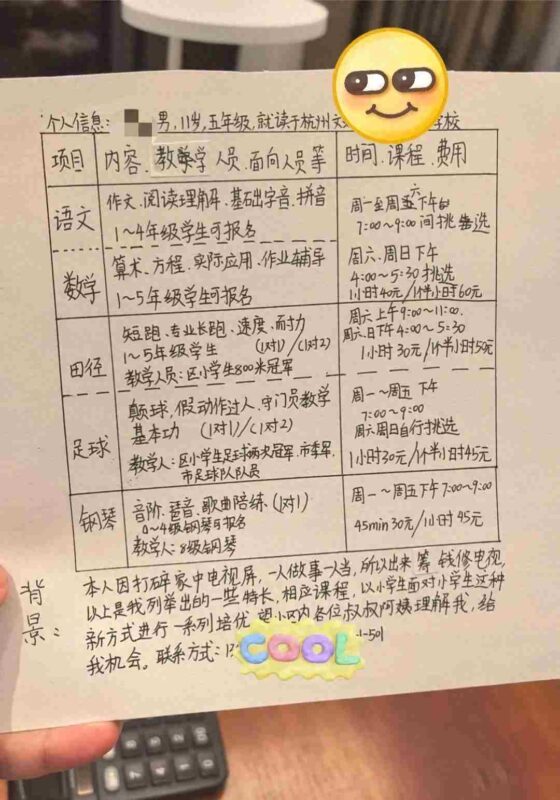 个人信息: 男,11岁,五年级,就读于杭州文 学校
项目 内容、教学人员、面向人员等 时间、课程、费用
语文
作文、阅读理解、基础字音、拼音
1~4年级学生可报名
周一至周六下午
7:00~9:00间挑选
数学
算术、方程、实际应用、作业辅导
1~5年级学生可报名
周六、周日下午
4:00~5:30挑选
1小时40元/1个半小时60元
田径
短跑、专业长跑、速度、耐力
1~5年级学生 (1对1)/(1对2)
教学人员:区小学生800米冠军
周六上午9:00~11:00.
周六、日下午4:00~5:30
1小时30元/1个半小时50元
足球
颠球,假动作过人、守门员教学
基本功 (1对1)/(1对2)
教学人:区小学生足球两次冠军、市季军、
市足球队队员
周一~周五下午
7:00~9:00
周六周日自行挑选
1小时30元/1个半小时45元
钢琴
音阶、琶音、歌曲陪练、(1对1)
0~4级钢琴可报名
教学人:8级钢琴
周一~周五下午7:00~9:00
45min30元/1小时45元
背景:
本人因打碎家中电视屏,一人做事一人当,所以出来筹钱修电视,
以上是我列举出的一些特长,相应课程,以小学生面对小学生这种
新方式进行一系列培优 望小区内各位叔叔阿姨理解我,给
我机会。联系方式:13 1-501
COOL